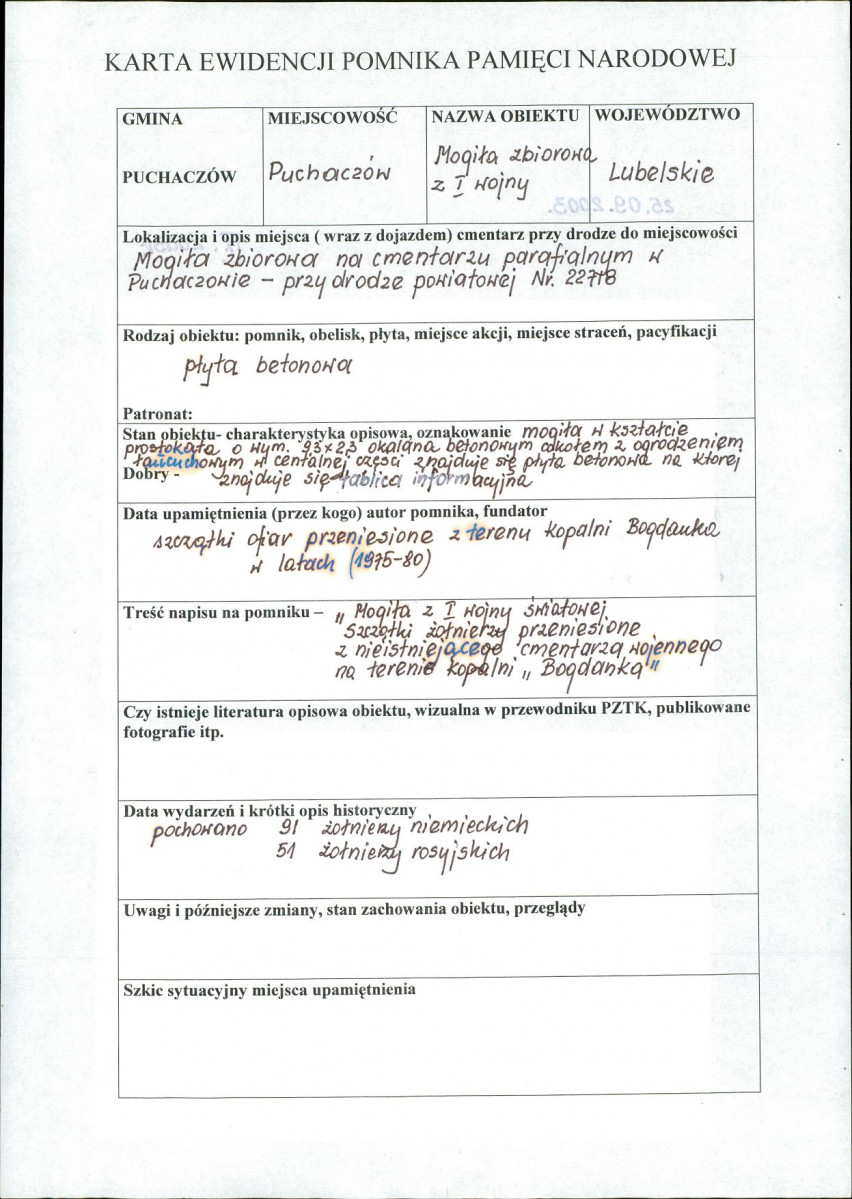 KARTA EWIDENCJI POMNIKA PAMIĘCI NARODOWEJ
GMINA
PUCHACZÓW
MIEJSCOWOŚĆ
Puchaczów
NAZWA OBIEKTU
Mogiła zbiorowa
z I wojny
WOJEWÓDZTWO
Lubelskie
25.09.2003.
Lokalizacja i opis miejsca ( wraz z dojazdem) cmentarz przy drodze do miejscowości
Mogiła zbiorowa na cmentarzu parafialnym w
Puchaczowie – przy drodze powiatowej Nr.
Rodzaj obiektu: pomnik, obelisk, płyta, miejsce akcji, miejsce straceń, pacyfikacji
płyta betonowa
Patronat:
Stan obiektu- charakterystyka opisowa, oznakowanie mogiła w kształcie
prostokąta o wym. 9,3 x 2,3 okalana betonowym cokołem z ogrodzeniem
łańcuchowym w centalnej części znajduje się płyta betonowa na której
Dobry - znajduje się tablica informacyjna
Data upamiętnienia (przez kogo) autor pomnika, fundator
szczątki ofiar przeniesione z terenu kopalni Bogdanka
w latach (1975-80)
Treść napisu na pomniku – „ Mogiła z I wojny światowej
Szczątki żołnierzy przeniesione
z nieistniejącego cmentarza wojennego
na terenie kopalni „ Bogdanka "
Czy istnieje literatura opisowa obiektu, wizualna w przewodniku PZTK, publikowane
fotografie itp.
Data wydarzeń i krótki opis historyczny
pochowano 91 żołnierzy niemieckich
51 żołnierzy rosyjskich
Uwagi i późniejsze zmiany, stan zachowania obiektu, przeglądy
Szkic sytuacyjny miejsca upamiętnienia